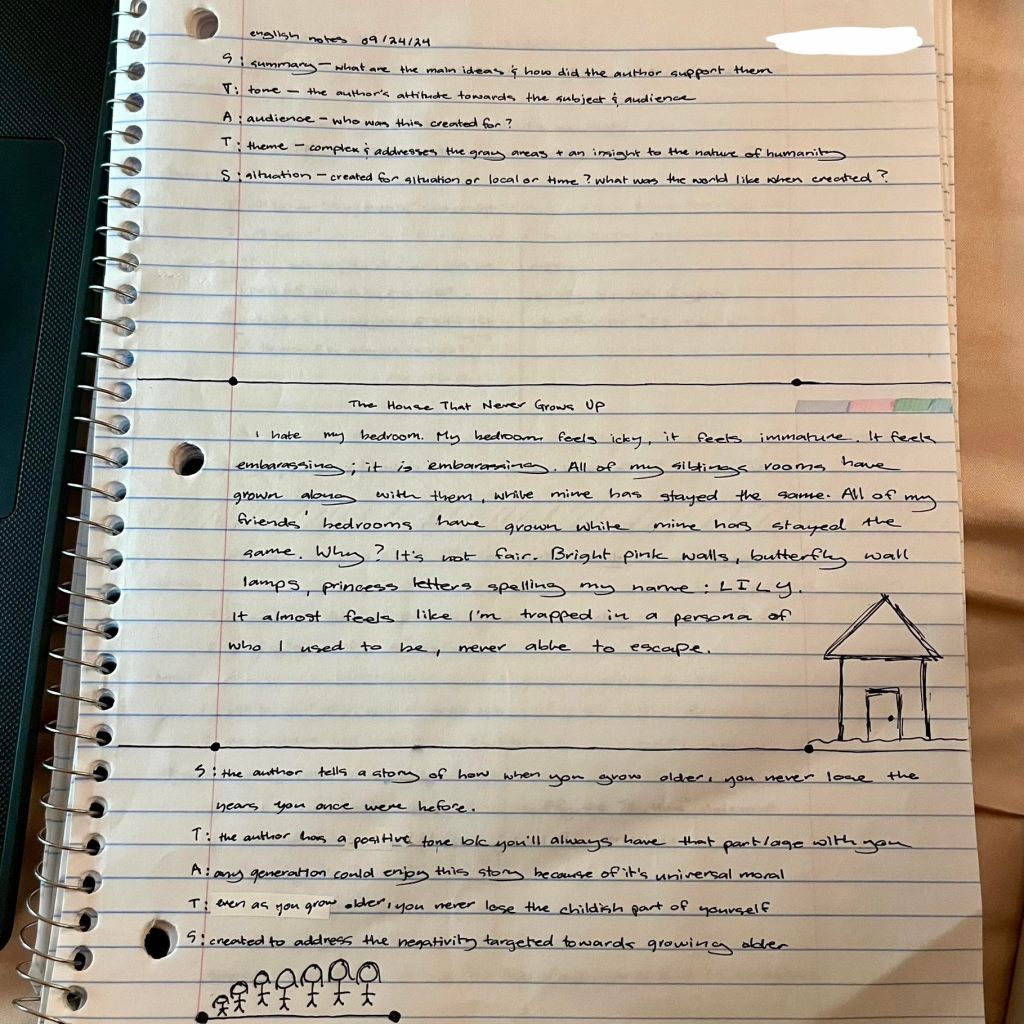 english notes 09/24/24
S: summary - what are the main ideas & how did the author support them
T: tone - the author's attitude towards the subject & audience
A: audience - who was this created for?
T: theme - complex & addresses the gray areas + an insight to the nature of humanity
S: situation - created for situation or local or time? what was the world like when created?
The House That Never Grows Up
I hate my bedroom. My bedroom feels icky, it feels immature. It feels
embarassing; it is embarassing. All of my siblings rooms have
grown along with them, while mine has stayed the same. All of my
friends' bedrooms have grown while mine has stayed the
same. Why? It's not fair. Bright pink walls, butterfly wall
lamps, princess letters spelling my name: LILY.
It almost feels like I'm trapped in a persona of
who I used to be, never able to escape.
S: the author tells a story of how when you grow older, you never lose the
years you once were before.
T: the author has a positive tone b/c you'll always have that part/age with you
A: any generation could enjoy this story because of it's universal moral
T: even as you grow older, you never lose the childish part of yourself
S: created to address the negativity targeted towards growing older